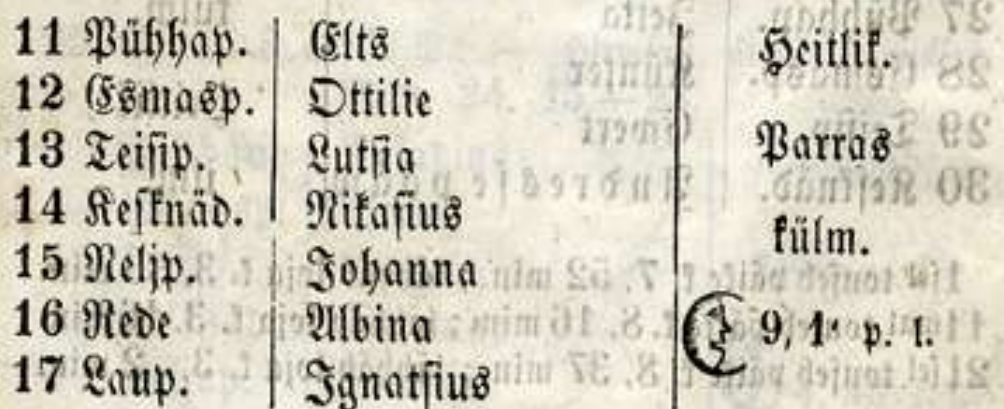 11 Pühhap. Elts
12 Esmasp. Ottilie Heitlik.
13 Teisip. Lutsia Parras
14 Kesknäd. Nikasius
15 Neljp. Johanna külm.
16 Rede Albina 9, 1· p. l.
17 Laup. Ignatsius